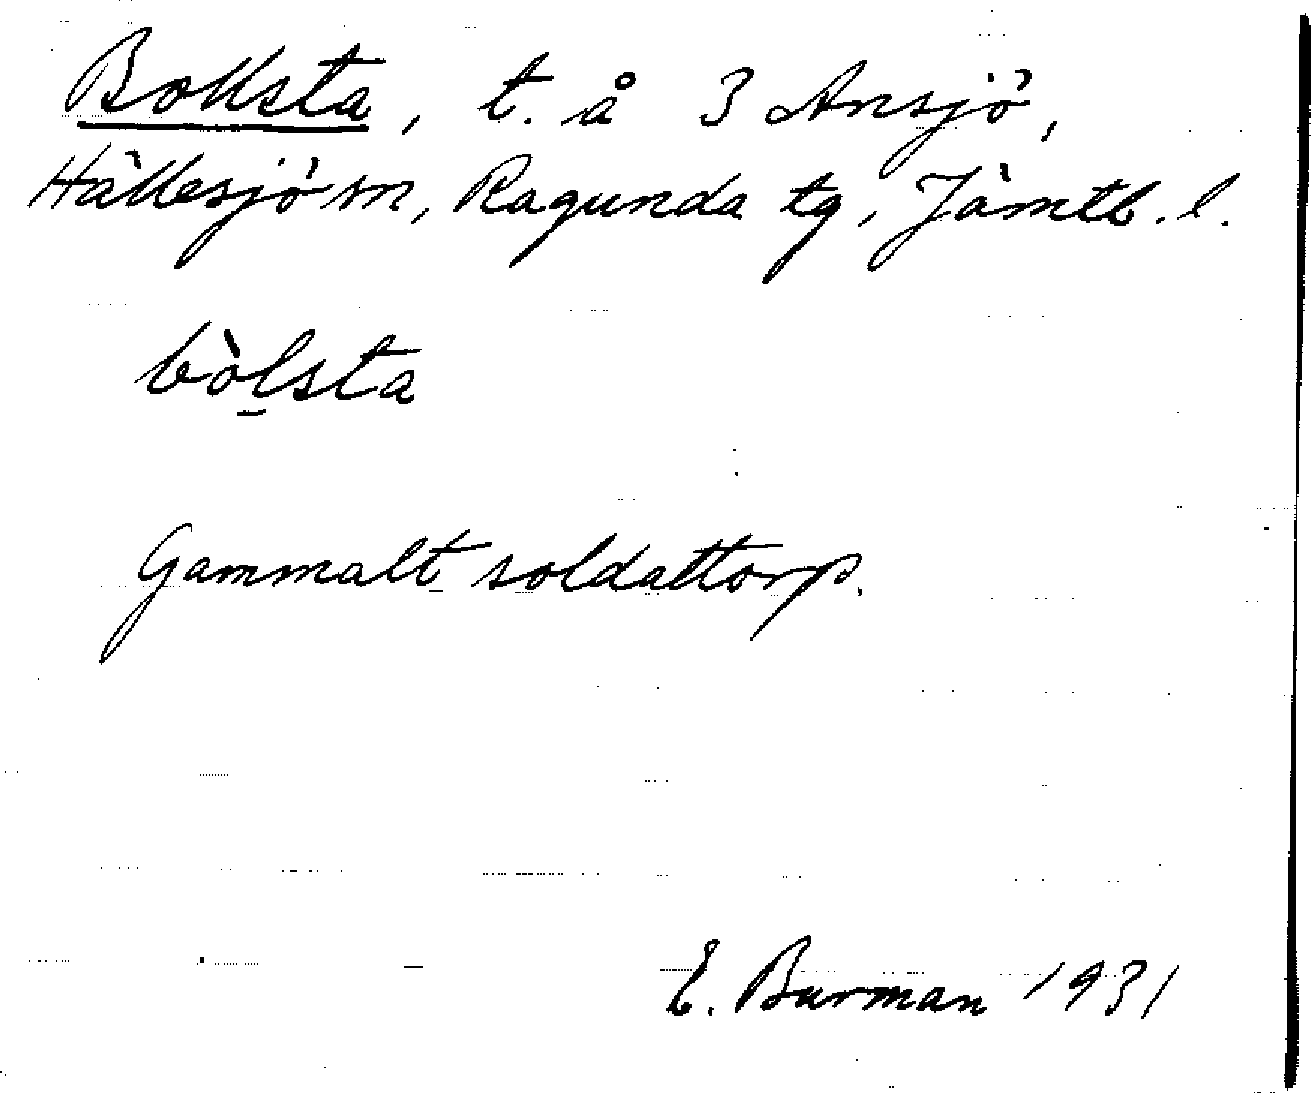 Bollsta, t. å 3 Ansjö,
Hällesjö sn, Ragunda tg, Jämtl. l.
bòl̠sta
Gammalt soldattorp.
E. Burman 1931